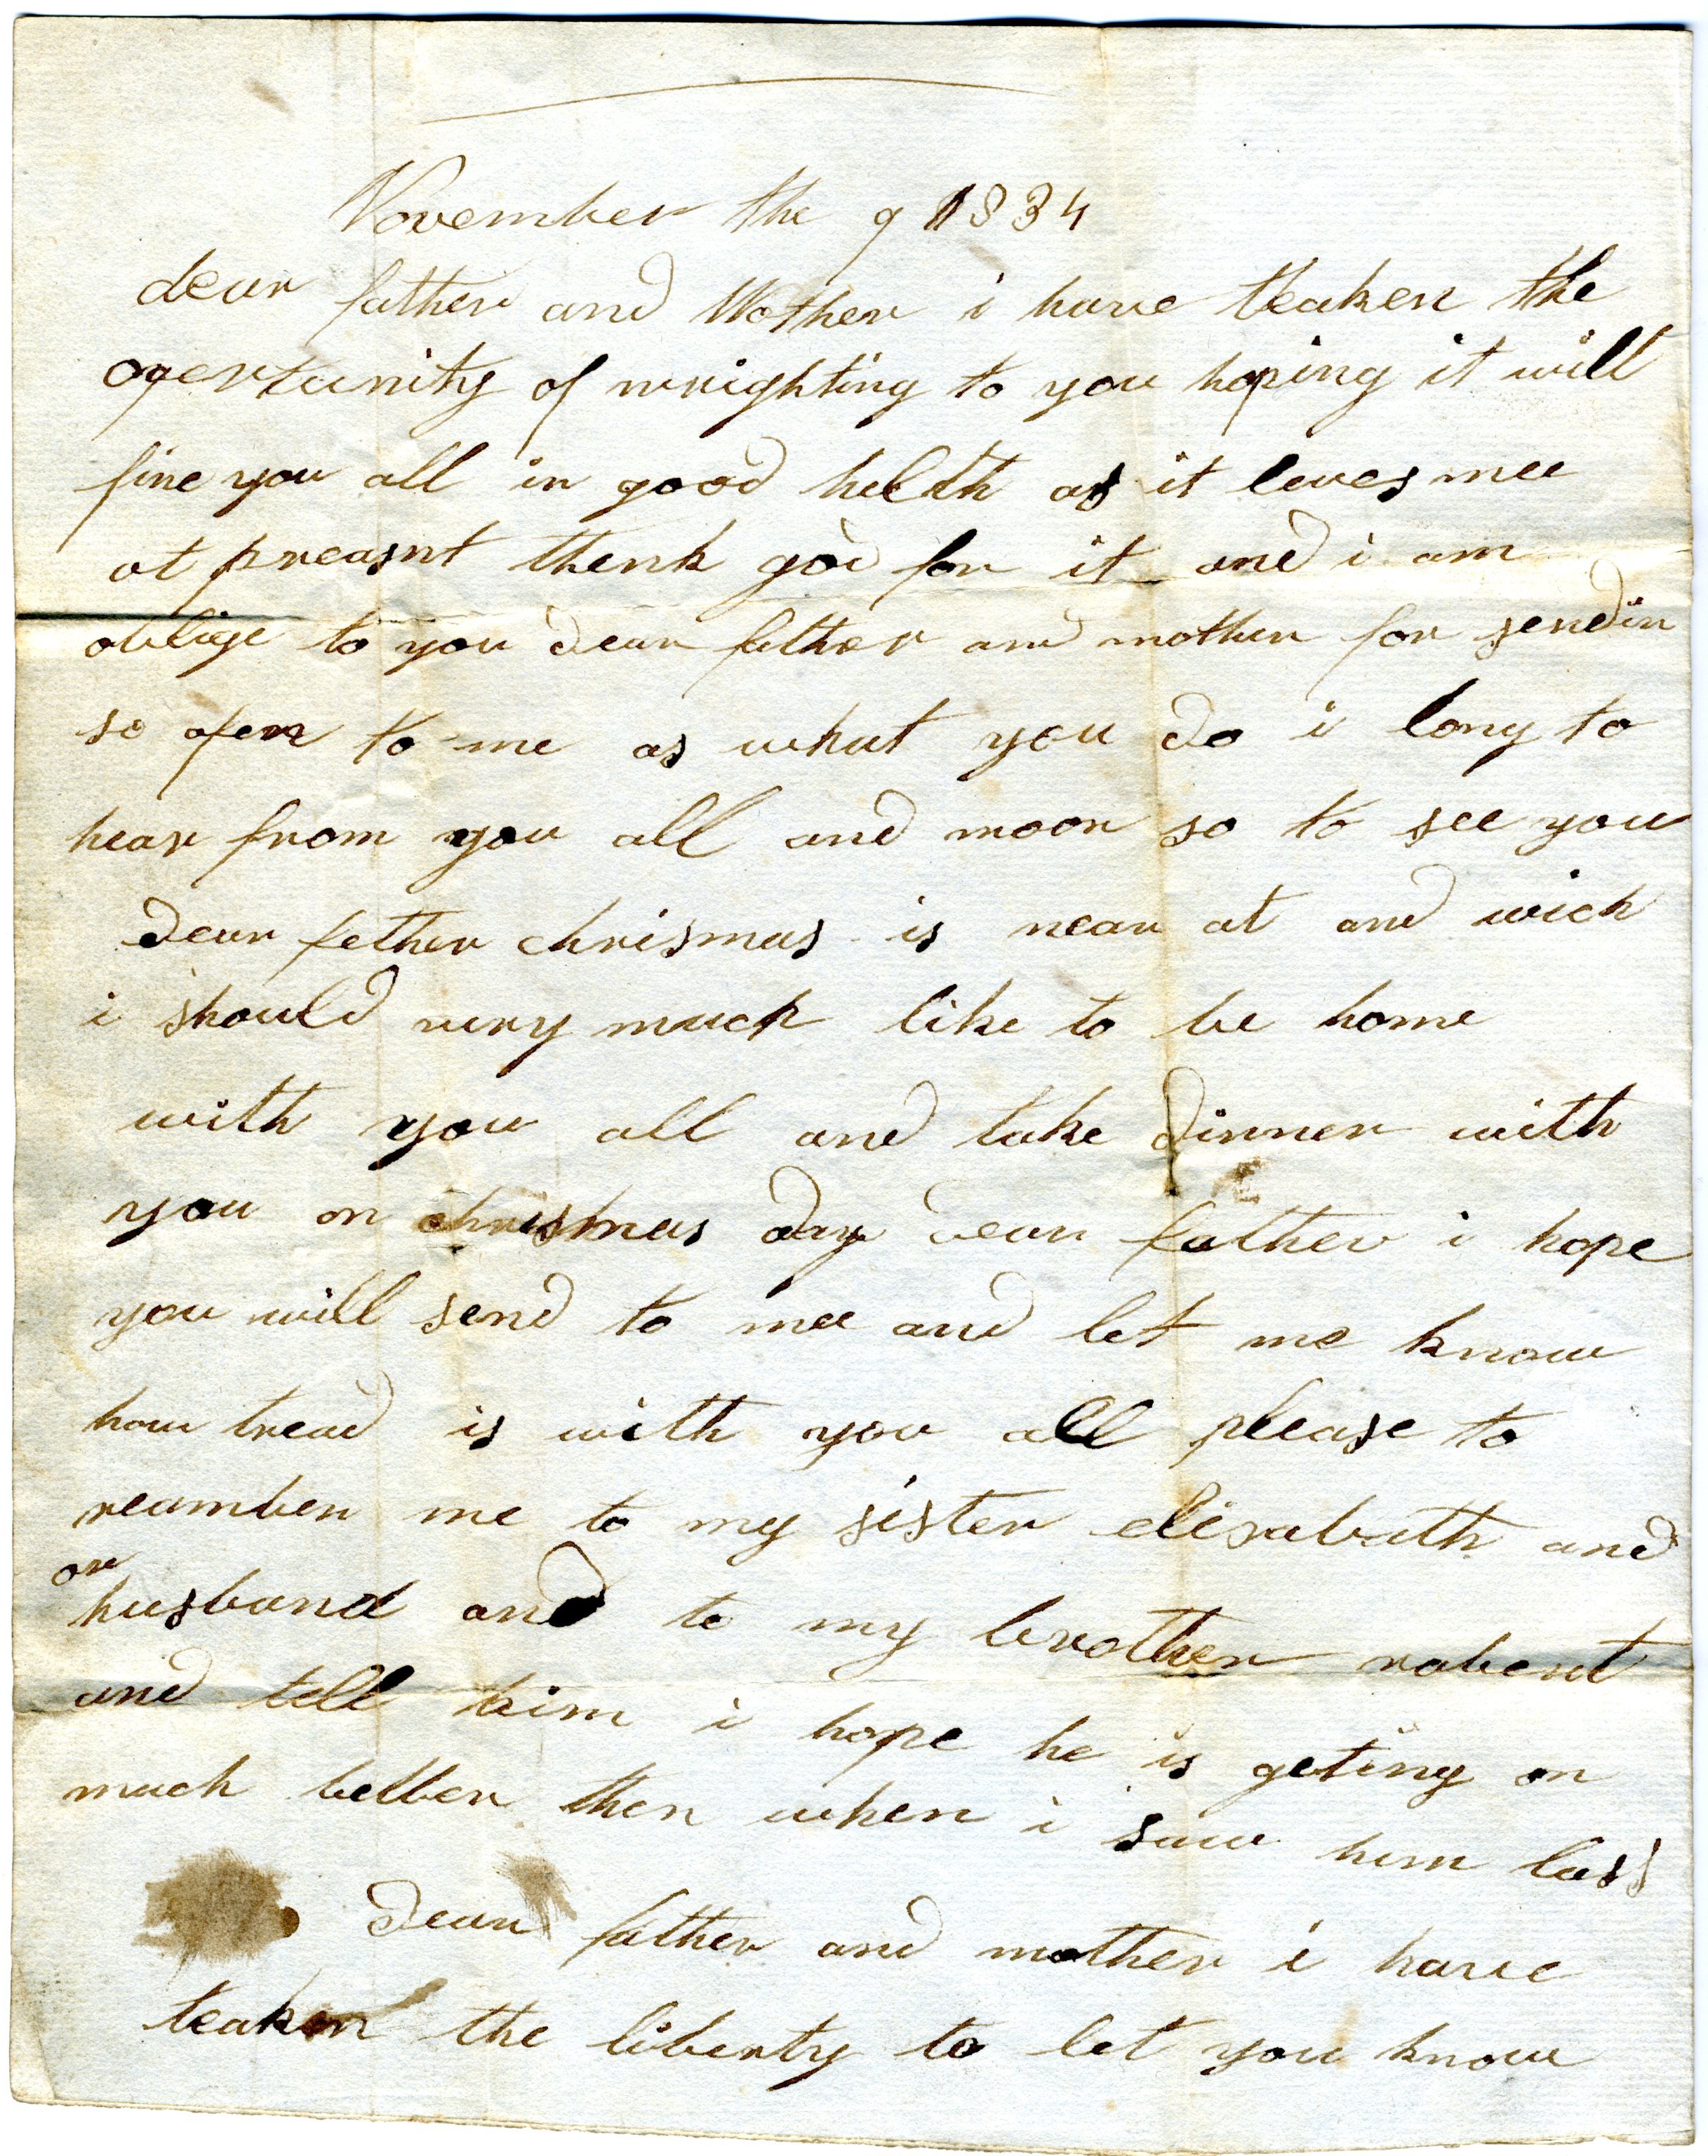 November the 9 1834
dear father and Mother i have teaken the
opertunity of wrighting to you hoping it will
fine you all in good helth as it leves mee
at preasnt thenk god for it and i am
oblige to you dear father and mother for sendin
so ofen to me as what you do i long to
hear from you all and moor so to see you
dear fether chrismas is near at and wich
i should very much like to be home
with you all and take dinner with
you on chrismas day dear father i hope
you will send to mee and let me know
how tread is with you all please to
reamber me to my sister elisabeth and
or
husband and to my brother robert
and tell him i hope he is geting on
much better then when i saw him lass
dear father and mother i have
teaken the liberty to let you know